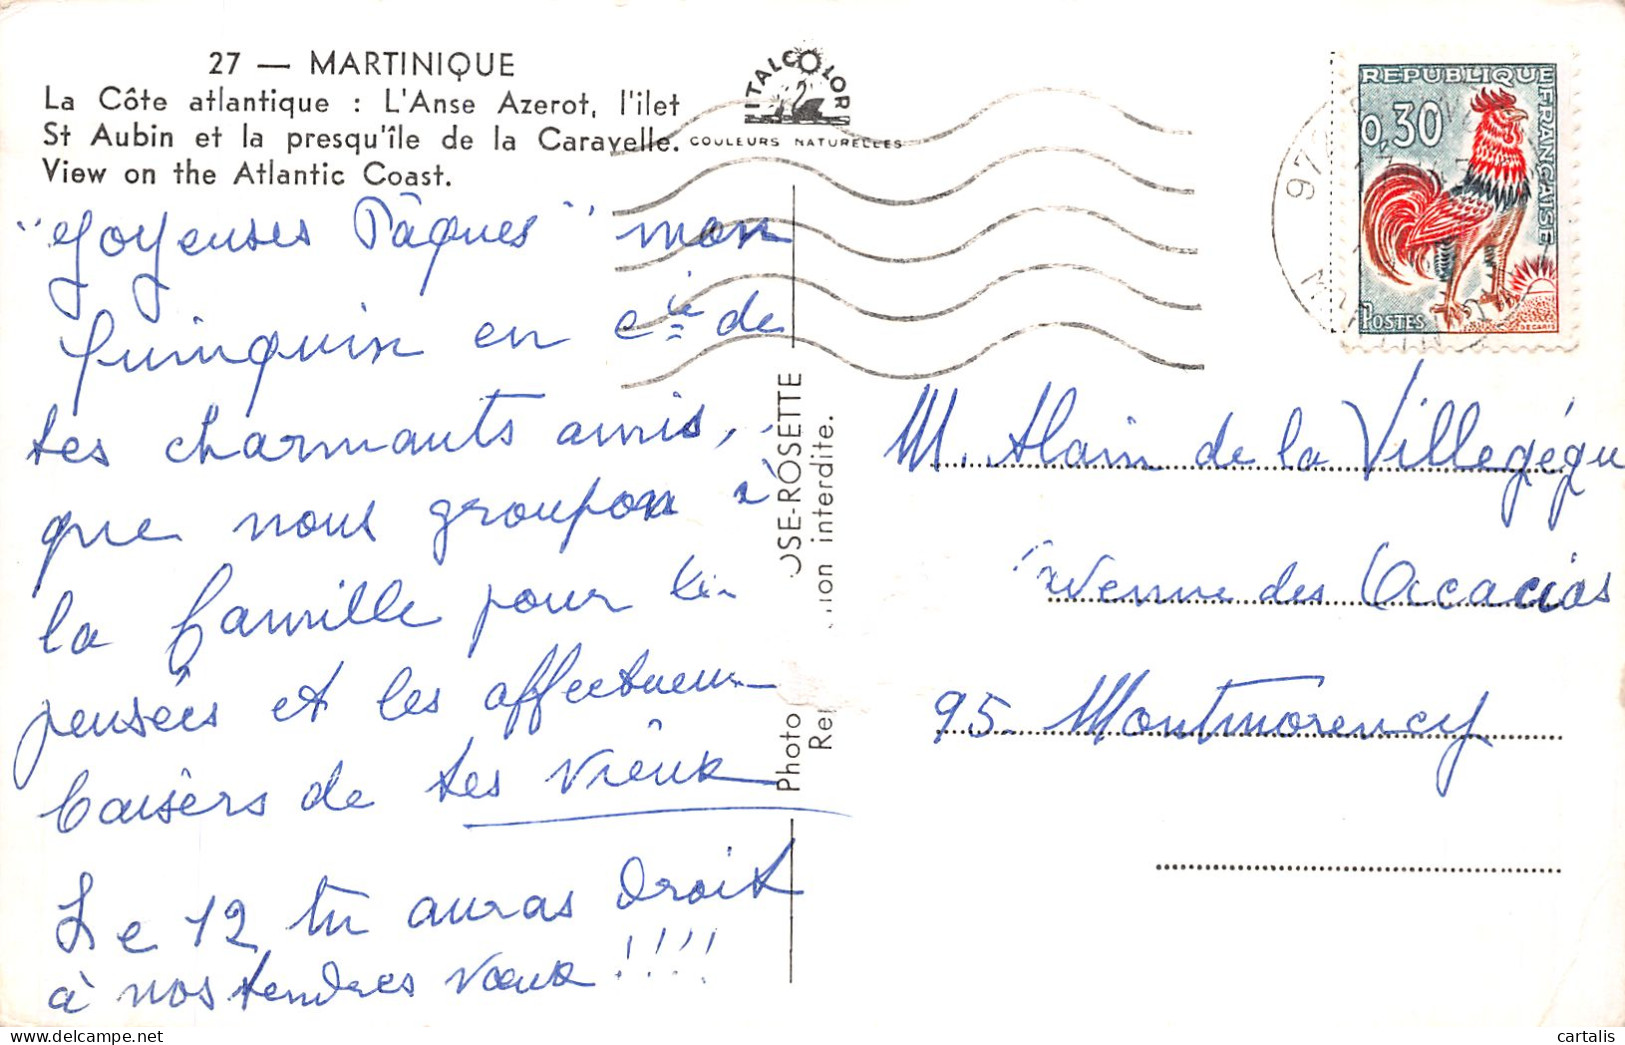 27 — MARTINIQUE
La Côte atlantique : L'Anse Azerot, l'ilet
St Aubin et la presqu'île de la Caravelle.
View on the Atlantic Coast.
ITALCOLOR
COULEURS NATURELLES
REPUBLIQUE FRANÇAISE
0,30
POSTES
DECARIS
"Joyeuses Pâques" mon
quinquin en cie de
tes charmants amis,
que nous groupons à
la famille pour les
pensées et les affectueux
baisers de tes vieux
Le 12 tu auras droit
à nos tendres vœux !!!!
Photo OSE-ROSETTE
interdite.
M. Alain de la Villegégu
Avenue des Acacias
95. Montmorency
cartalis